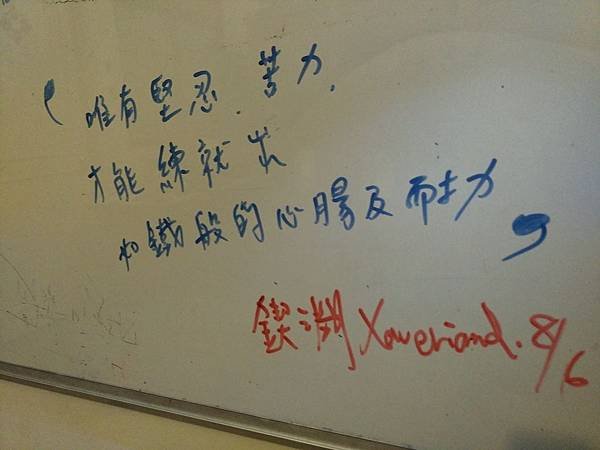 「唯有堅忍、苦力,
才能練就出
如鐵般的心腸及耐力」
鐵淵 Xaveriand. 8/6